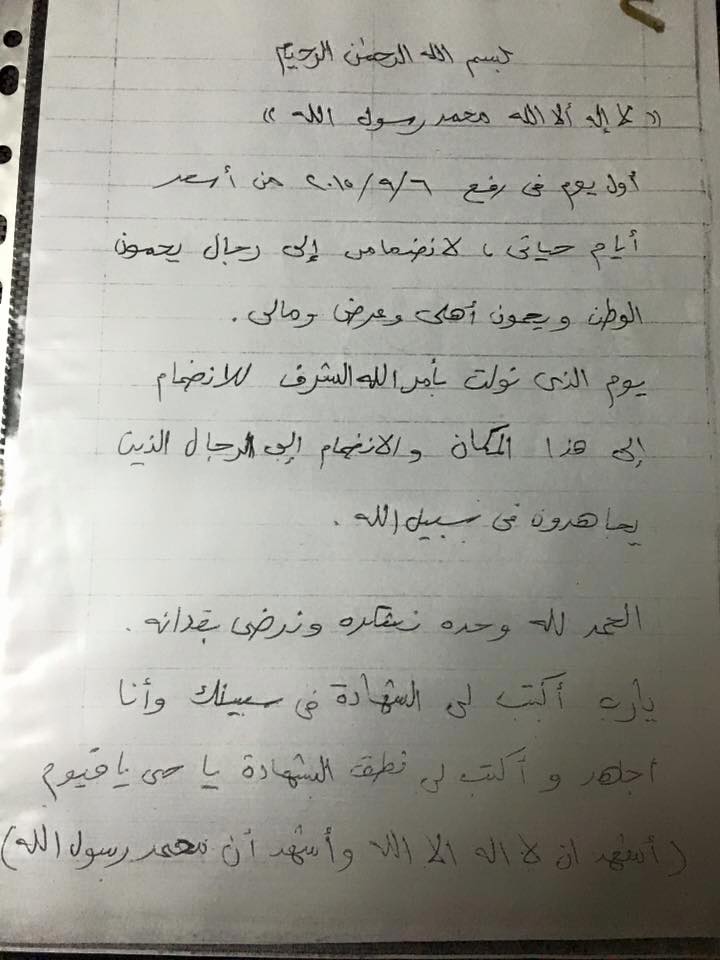 بسم الله الرحمن الرحيم
« لا إله ألا الله محمد رسول الله »
أول يوم فى رفح ٢٠١٥/٩/٦ من أسعد
أيام حياتى ، لانضمامى إلى رجال يحمون
الوطن ويحمون أهلى وعرضى ومالى .
يوم الذى نولت بأمر الله الشرف للانضمام
إلى هذا المكان والانضمام إلى الرجال الذين
يجاهدون فى سبيل الله .
الحمد لله وحده نشكره ونرضى بقدانه .
يارب أكتب لى الشهادة فى سبيلك وأنا
أجاهد و أكتب لى نطق الشهادة يا حى يا قيوم
(أشهد ان لا اله الا الله وأشهد أن محمد رسول الله)